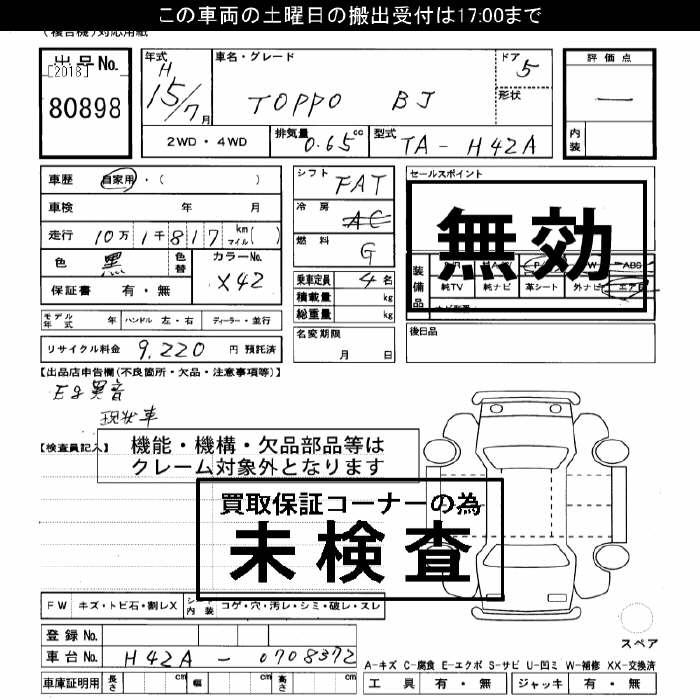 この車両の土曜日の搬出受付は17:00まで
(複合機)対応用紙
出品No.
[2018]
80898
年式
H
15/7月
車名・グレード
TOPPO BJ
ドア
5
形状
評価点
一
内装
2WD・4WD
排気量
0.65cc
型式
TA-H42A
車歴 自家用・( )
車検 年 月
走行 10万1千817km マイル( )
色 黒
色替
カラーNo.
X42
保証書 有・無
シフト FAT
冷房 AC
燃料 G
乗車定員 4名
積載量 kg
総重量 kg
セールスポイント
無効
装備品
ABS
純TV 純ナビ 革シート 外ナビ エアB
モデル年式 年 ハンドル 左・右 ディーラー・並行
名変期限
月 日
後日品
リサイクル料金 9,220 円 預託済
【出品店申告欄(不良箇所・欠品・注意事項等)】
Eg異音
現状車
【検査員記入】
機能・機構・欠品部品等は
クレーム対象外となります
買取保証コーナーの為
未検査
FW キズ・トビ石・割レX シート内装 コゲ・穴・汚レ・シミ・破レ・スレ
登録No.
車台No. H42A-0708372
スペア
A-キズ C-腐食 E-エクボ S-サビ U-凹ミ W-補修 XX-交換済
車庫証明用 長さ cm 幅 cm 高さ cm
工具 有・無 ジャッキ 有・無